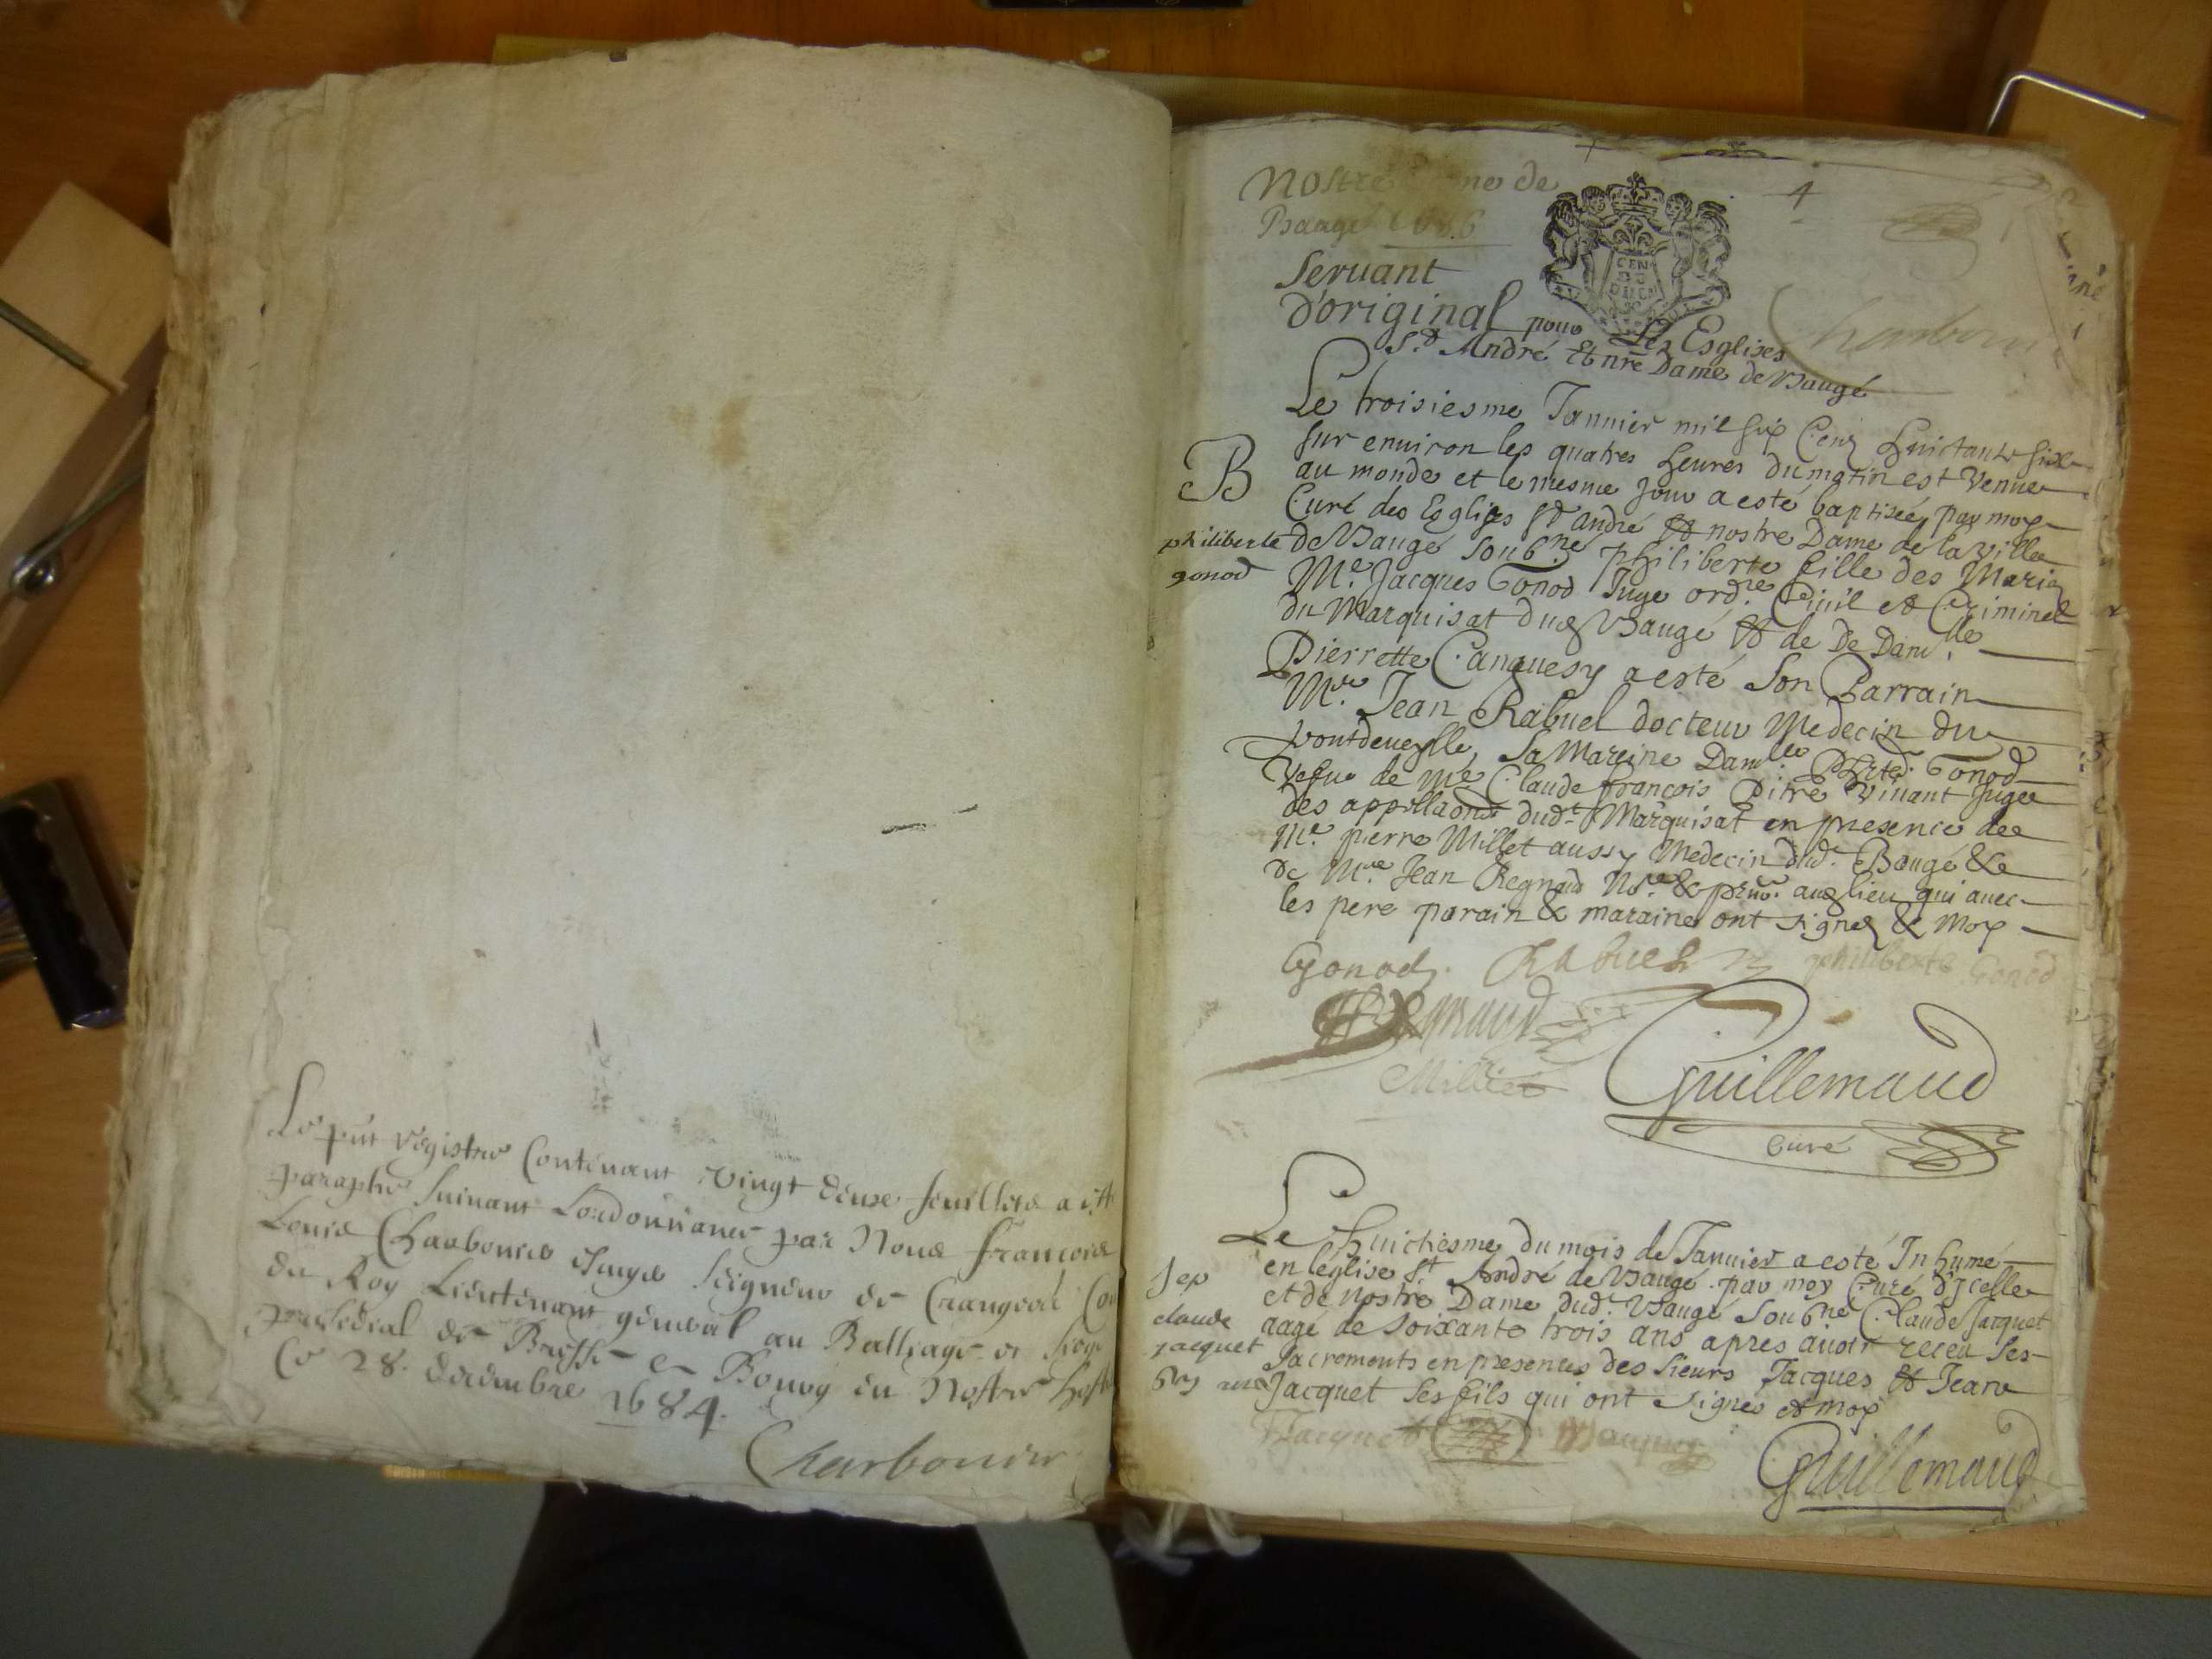 Le pñt registre Contenant vingt deux feuillets a esté
paraphé suivant Lordonnance par Nous françois
Louis Charbonnier Escuyer Seigneur de Crangeac Con
du Roy Lieutenant general au Balliage et siege
presidial de Bresse et Bourg en Nostre hostel
Ce 28. decembre 1684.
Charbonnier
Nostre Dame de
Baagé 1686
4
Seruant
d'original pour Les Esglises
St André Et nre Dame de Baugé
Le troisiesme Januier mil six Cent huictante six
sur enuiron les quatres heures du matin est venue
B
au monde et le mesme jour a esté baptisée, par moy
Curé des Esglises St André Et nostre Dame de la ville
philiberte
gonod
de Baugé soubné Philiberte fille des Mariez
Me Jacques Gonod Juge ordre Ciuil et Criminel
du Marquisat dud Baugé Et de De Damlle
Pierrette Canquesy a esté Son Parrain
Mre Jean Rabuel docteur Medecin du
pontdeueylle, Sa Mareine Damlle Philte Gonod
Vefue de Me Claude françois Pitre viuant Juge
des appellaons dudt Marquisat en presence de
Me pierre Millet aussy Medecin dud. Baugé &
de Mre Jean Regnaud Nore & prnr. aud lieu qui auec
les pere parain & maraine ont signez & Moy
Gonod. Rabuel philiberte Gonod
Regnaud
Milliet
Guillemaud
Curé
Le huictiesme du mois de Januier a esté Inhumé
en léglise St André de Baugé par moy Curé d'jcelle
Sep
claude
jacquet
63 ans
et de nostre Dame dud. Baugé soubné Claude Jacquet
aagé de soixante trois ans apres auoir receu ses
sacrements en presences des sieurs Jacques Et Jean
Jacquet ses fils qui ont signes et moy
Jacquet
Guillemaud